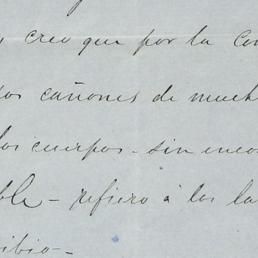 creo que por la con
os cañones de much
los cuerpos - sin enco
ble - refiero á los la
ibio -